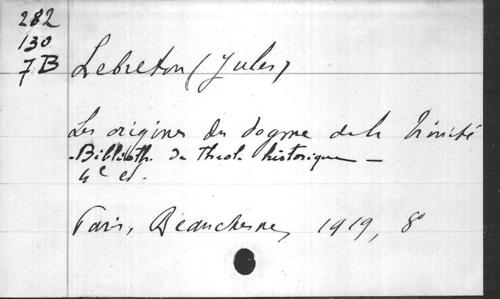 282
130
7B
Lebreton (Jules)
Les origines du dogme de la Trinité
- Biblioth. de Théol. historique -
4e éd.
Paris, Beauchesne, 1919, 8°